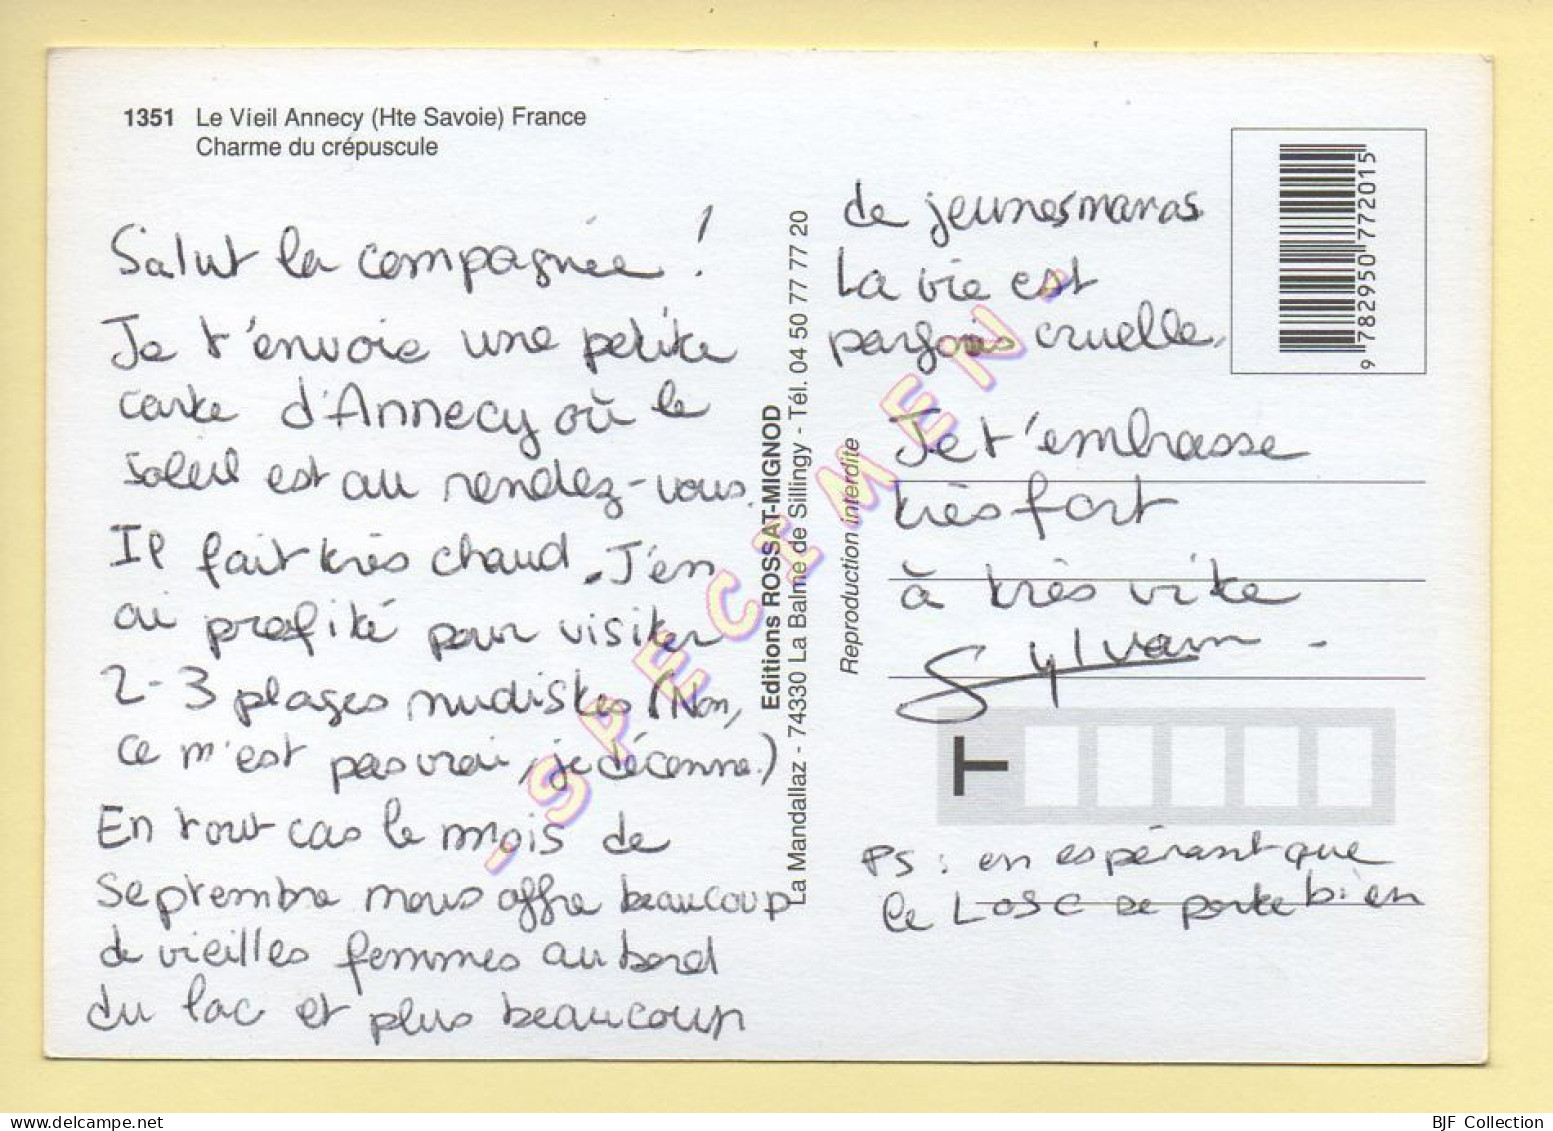 1351 Le Vieil Annecy (Hte Savoie) France
Charme du crépuscule
Salut la compagnie !
Je t'envoie une petite
carte d'Annecy où le
soleil est au rendez-vous.
Il fait très chaud. J'en
ai profité pour visiter
2-3 plages nudistes (Non,
ce n'est pas vrai, je déconne.)
En tout cas le mois de
septembre nous offre beaucoup
de vieilles femmes au bord
du lac et plus beaucoup
Editions ROSSAT-MIGNOD
La Mandallaz - 74330 La Balme de Sillingy - Tél. 04 50 77 77 20
Reproduction interdite
- SPECIMEN -
de jeunes nanas
La vie est
parfois cruelle.
Je t'embrasse
très fort
à très vite
Sylvain
9 782950 772015
T
PS : en espérant que
le LOSC se porte bien
BJF Collection